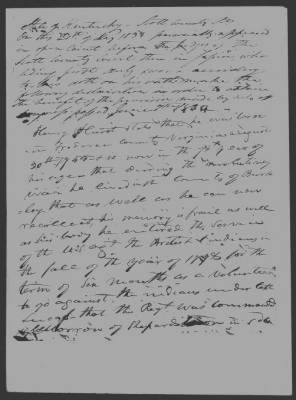 State of Kentucky Scott County Sc.
On this 20th of Augt 1834 personally appeared
in open court before the Judge of the
Scott County court then in Session who
being first duly sworn according
to law doth on his oath make the
following declaration in order to obtain
the benefit of the provision made by act of
Congress passed June 7th 1832
Henry Hurst states that he was born
in County Virginia August
30th now in the year of
his age that during the revolutionary
war he lived in the County of Berk
ley that as well as he can now
recollect, his memory is frail as well
as his body, he entered the Service
of the US agt the British & indians in
the fall of the year of for the
term of Six months as a volunteer
to go against the indians under
that the Regt was command
of in